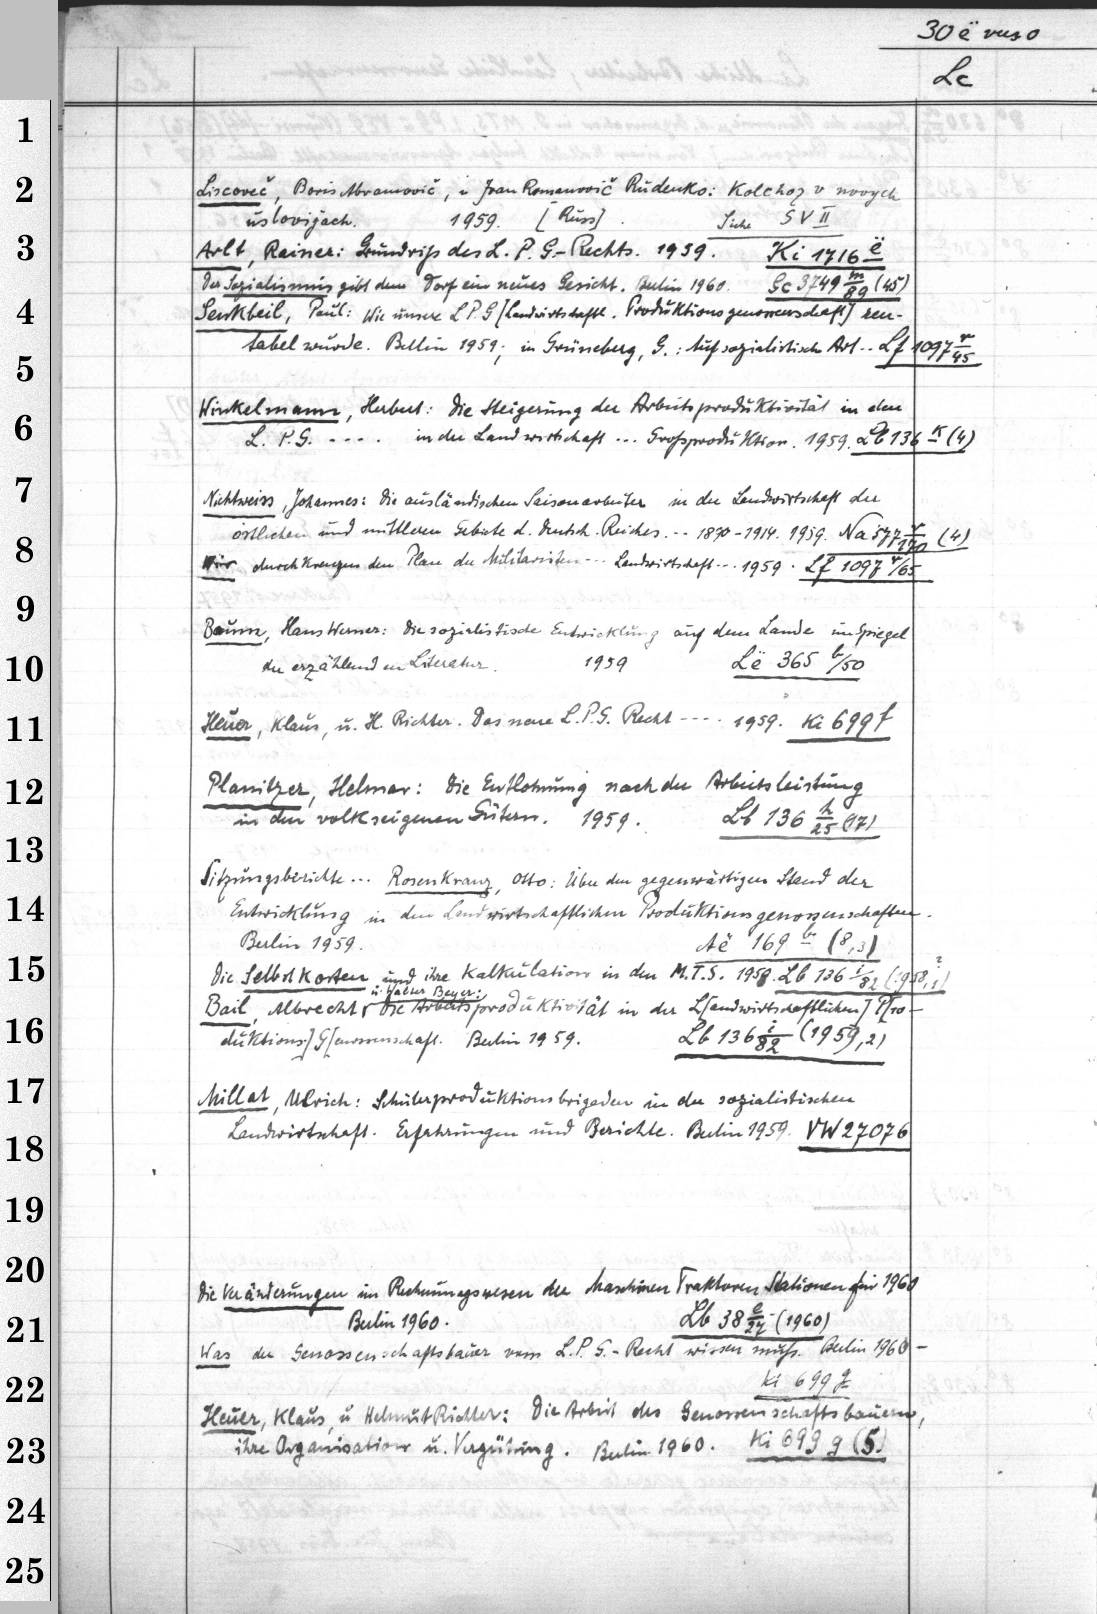 30 ë vuso
Lc
1
2
3
4
5
6
7
8
9
10
11
12
13
14
15
16
17
18
19
20
21
22
23
24
25
Liscoveč, Boris Abramovič, i Ivan Romanovič Rudenko: Kolchoz v novych
uslovijach. 1959. [Russ]. Siehe S V II
Arlt, Rainer: Grundriß des L. P. G.-Rechts. 1959. Ki 1716 ë
Der Sozialismus gibt dem Dorf ein neues Gesicht. Berlin 1960. Gc 3749 m/89 (45)
Senkbeil, Paul: Wie unsere L P G [Landwirtschaftl. Produktionsgenossenschaft] ren-
tabel wurde. Berlin 1959; in Grüneberg, G.: Auf sozialistische Art.. Lf 1097 v/45
Winkelmann, Herbert: Die Steigerung der Arbeitsproduktivität in den
L. P. G. .... in der Landwirtschaft ... Großproduktion. 1959. Lb 136 K (4)
Nichtweiss, Johannes: Die ausländischen Saisonarbeiter in der Landwirtschaft der
östlichen und mittleren Gebiete d. Deutsch. Reiches... 1890-1914. 1959. Na 577 v/170 (4)
Wir durchkreuzen den Plan der Militaristen... Landwirtschaft... 1959. Lf 1097 v/65
Baum, Hans Werner: Die sozialistische Entwicklung auf dem Lande im Spiegel
der erzählenden Literatur. 1959 Lë 365 b/50
Heuer, Klaus, u. H. Richter. Das neue L.P.G. Recht .... 1959. Ki 699 f
Planitzer, Helmar: Die Entlohnung nach der Arbeitsleistung
in den volkseigenen Gütern. 1959. Lb 136 h/25 (17)
Sitzungsberichte ... Rosenkranz, Otto: Über den gegenwärtigen Stand der
Entwicklung in den Landwirtschaftlichen Produktionsgenossenschaften.
Berlin 1959. Aë 169 b (8,3)
Die Selbstkosten und ihre Kalkulation in den M.T.S. 1958. Lb 136 i/82 (1958,1)
u. Walter Beyer:
Bail, Albrecht, Die Arbeitsproduktivität in der L[andwirtschaftlichen] P[ro-
duktions] G[enossenschaft. Berlin 1959. Lb 136 i/82 (1959,2)
Millat, Ulrich: Schülerproduktionsbrigaden in der sozialistischen
Landwirtschaft. Erfahrungen und Berichte. Berlin 1959. VW 27076
Die Veränderungen im Rechnungswesen der Maschinen Traktoren Stationen für 1960
Berlin 1960. Lb 38 e/27 (1960)
Was der Genossenschaftsbauer vom L.P.G.-Recht wissen muß. Berlin 1960-
Ki 699 g
Heuer, Klaus, u Helmut Richter: Die Arbeit des Genossenschaftsbauern,
ihre Organisation u. Vergütung. Berlin 1960. Ki 699 g (5)